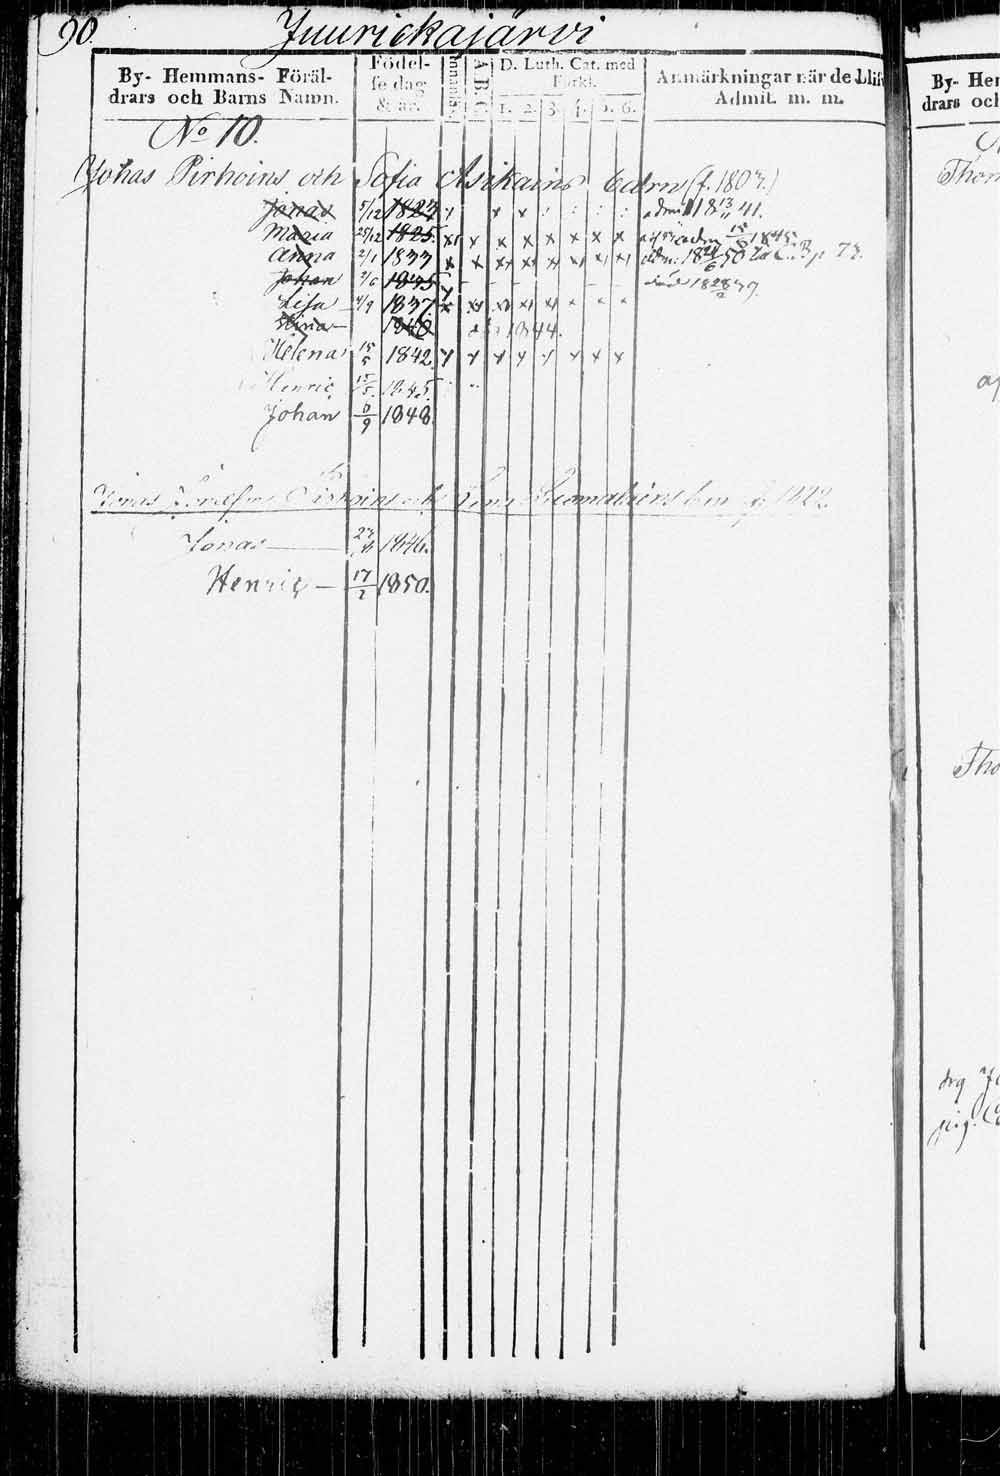 90.
Juurickajärvi
By- Hemmans- Föräldrars och Barns Namn.
Födelse dag & år.
Innanläs.
A B C
D. Luth. Cat. med Förkl.
1. 2. 3. 4. 5. 6.
Anmärkningar när de blifv
Admit. m. m.
No 10.
Johas Pirhoins och Sofia Asikains barn (f. 1803.)
Jonas 5/12 1823 x x adm 18 13/11 41.
Maria 25/12 1825. x x x x x x x x adm 15/6 1845
Anna 2/1 1833 x x x x x x x x adm: 18 24/6 50 p 73.
Johan 2/6 1835 – – – död 18 28/2 39.
Lisa 4/9 1837. x x x x x
Stina – 1840 1844.
Helena 15/5 1842 x x x x x x x x
Henric 15/5 1845.
Johan 6/9 1848.
Jonas Pirhoins och barn f. 1822.
Jonas — 1846.
Henric – 17/2 1850.
By- Hem
drars och
Thom
Tho
drg
pig.